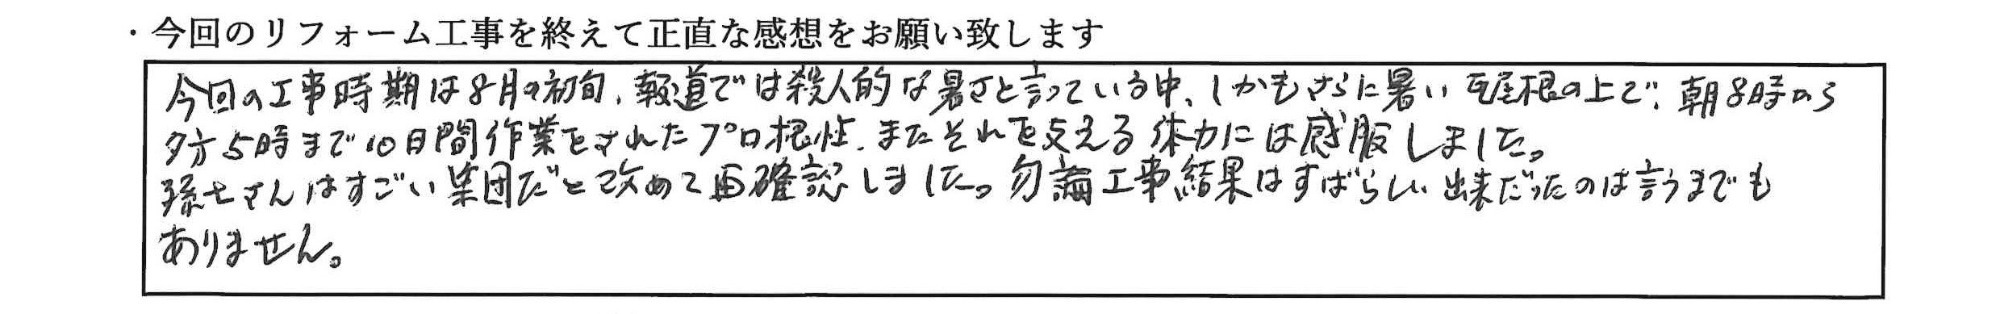 ・今回のリフォーム工事を終えて正直な感想をお願い致します
今回の工事時期は8月の初旬、報道では殺人的な暑さと言っている中、しかもさらに暑い屋根の上で、朝8時から
夕方5時まで10日間作業をされたプロ根性、またそれを支える体力には感服しました。
孫七さんはすごい集団だと改めて再確認しました。勿論工事結果はすばらしい出来だったのは言うまでも
ありません。